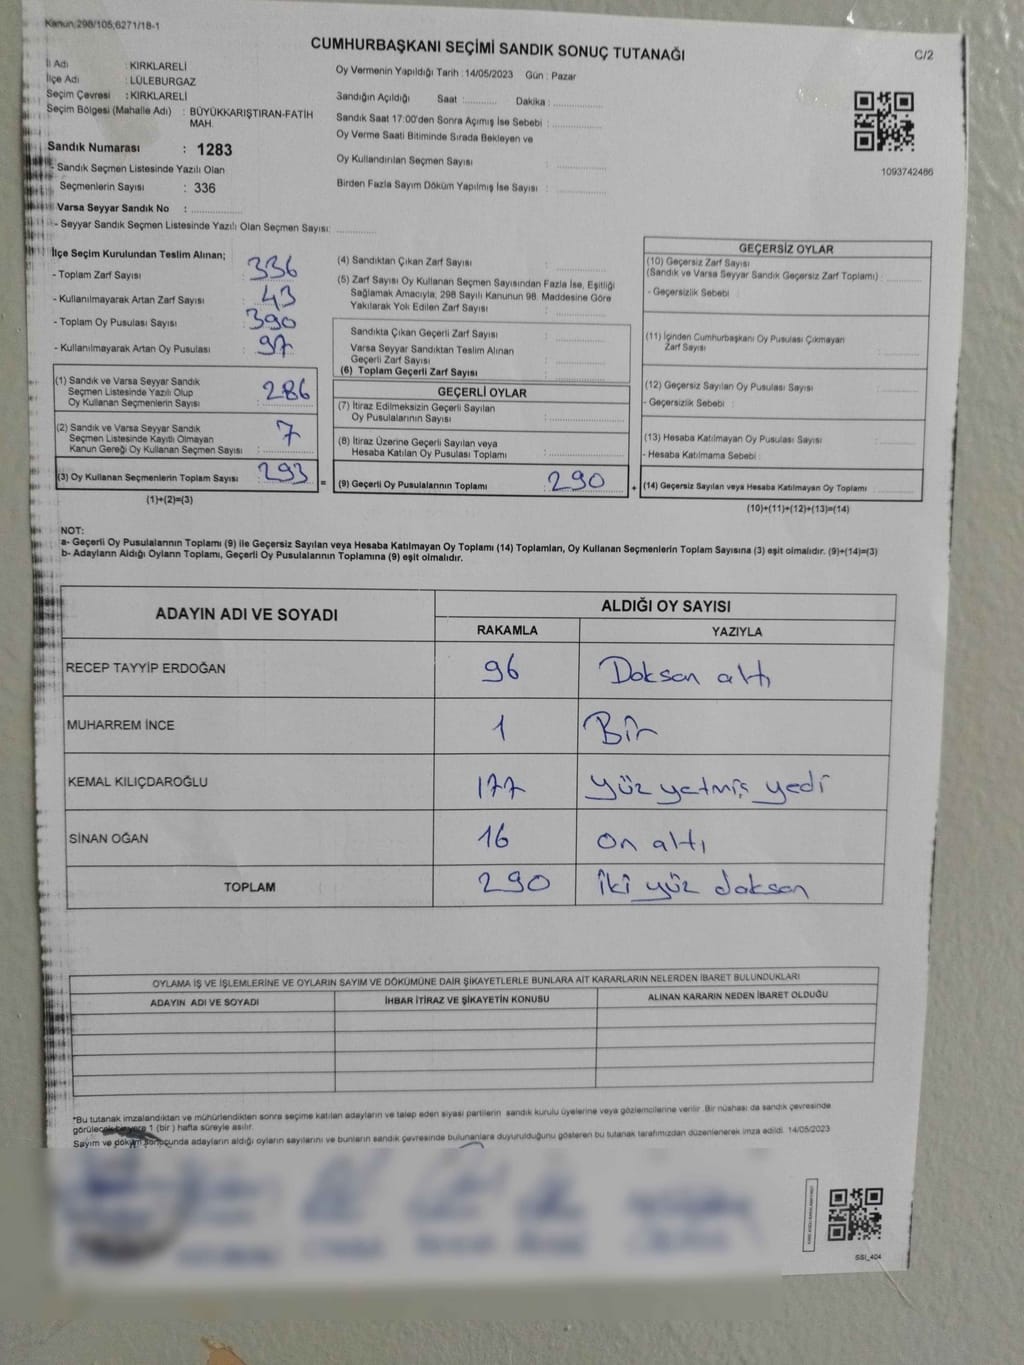 Kanun:298/105,6271/18-1
CUMHURBAŞKANI SEÇİMİ SANDIK SONUÇ TUTANAĞI
C/2
İl Adı : KIRKLARELİ
İlçe Adı : LÜLEBURGAZ
Seçim Çevresi : KIRKLARELİ
Seçim Bölgesi (Mahalle Adı) : BÜYÜKKARIŞTIRAN-FATİH
MAH.
Sandık Numarası : 1283
- Sandık Seçmen Listesinde Yazılı Olan
Seçmenlerin Sayısı : 336
Varsa Seyyar Sandık No : ..............
- Seyyar Sandık Seçmen Listesinde Yazılı Olan Seçmen Sayısı: ............
Oy Vermenin Yapıldığı Tarih : 14/05/2023 Gün : Pazar
Sandığın Açıldığı Saat :........... Dakika :..............
Sandık Saat 17:00'den Sonra Açımış İse Sebebi : ..............
Oy Verme Saati Bitiminde Sırada Bekleyen ve
Oy Kullandırılan Seçmen Sayısı : ..............
Birden Fazla Sayım Döküm Yapılmış İse Sayısı : ..............
1093742466
İlçe Seçim Kurulundan Teslim Alınan;
- Toplam Zarf Sayısı : 336
- Kullanılmayarak Artan Zarf Sayısı : 43
- Toplam Oy Pusulası Sayısı : 390
- Kullanılmayarak Artan Oy Pusulası : 97
(1) Sandık ve Varsa Seyyar Sandık
Seçmen Listesinde Yazılı Olup
Oy Kullanan Seçmenlerin Sayısı : 286
(2) Sandık ve Varsa Seyyar Sandık
Seçmen Listesinde Kayıtlı Olmayan
Kanun Gereği Oy Kullanan Seçmen Sayısı : 7
(3) Oy Kullanan Seçmenlerin Toplam Sayısı : 293 =
(1)+(2)=(3)
(4) Sandıktan Çıkan Zarf Sayısı : ..............
(5) Zarf Sayısı Oy Kullanan Seçmen Sayısından Fazla İse, Eşitliği
Sağlamak Amacıyla, 298 Sayılı Kanunun 98. Maddesine Göre
Yakılarak Yok Edilen Zarf Sayısı : ..............
Sandıkta Çıkan Geçerli Zarf Sayısı : ..............
Varsa Seyyar Sandıktan Teslim Alınan
Geçerli Zarf Sayısı : ..............
(6) Toplam Geçerli Zarf Sayısı : ..............
GEÇERLİ OYLAR
(7) İtiraz Edilmeksizin Geçerli Sayılan
Oy Pusulalarının Sayısı : ..............
(8) İtiraz Üzerine Geçerli Sayılan veya
Hesaba Katılan Oy Pusulası Toplamı : ..............
(9) Geçerli Oy Pusulalarının Toplamı : 290 +
GEÇERSİZ OYLAR
(10) Geçersiz Zarf Sayısı
(Sandık ve Varsa Seyyar Sandık Geçersiz Zarf Toplamı) : ..........
- Geçersizlik Sebebi :
(11) İçinden Cumhurbaşkanı Oy Pusulası Çıkmayan
Zarf Sayısı : ..........
(12) Geçersiz Sayılan Oy Pusulası Sayısı : ..........
- Geçersizlik Sebebi :
(13) Hesaba Katılmayan Oy Pusulası Sayısı : ..........
- Hesaba Katılmama Sebebi :
(14) Geçersiz Sayılan veya Hesaba Katılmayan Oy Toplamı : ..........
(10)+(11)+(12)+(13)=(14)
NOT:
a- Geçerli Oy Pusulalarının Toplamı (9) ile Geçersiz Sayılan veya Hesaba Katılmayan Oy Toplamı (14) Toplamları, Oy Kullanan Seçmenlerin Toplam Sayısına (3) eşit olmalıdır. (9)+(14)=(3)
b- Adayların Aldığı Oyların Toplamı, Geçerli Oy Pusulalarının Toplamına (9) eşit olmalıdır.
ADAYIN ADI VE SOYADI ALDIĞI OY SAYISI
RAKAMLA YAZIYLA
RECEP TAYYİP ERDOĞAN 96 Doksan altı
MUHARREM İNCE 1 Bir
KEMAL KILIÇDAROĞLU 177 yüz yetmiş yedi
SİNAN OĞAN 16 On altı
TOPLAM 290 iki yüz doksan
OYLAMA İŞ VE İŞLEMLERİNE VE OYLARIN SAYIM VE DÖKÜMÜNE DAİR ŞİKAYETLERLE BUNLARA AİT KARARLARIN NELERDEN İBARET BULUNDUKLARI
ADAYIN ADI VE SOYADI İHBAR İTİRAZ VE ŞİKAYETİN KONUSU ALINAN KARARIN NEDEN İBARET OLDUĞU
*Bu tutanak imzalandıktan ve mühürlendikten sonra seçime katılan adayların ve talep eden siyasi partilerin sandık kurulu üyelerine veya gözlemcilerine verilir. Bir nüshası da sandık çevresinde
görülecek bir yere 1 (bir ) hafta süreyle asılır.
Sayım ve döküm sonucunda adayların aldığı oyların sayılarını ve bunların sandık çevresinde bulunanlara duyurulduğunu gösteren bu tutanak tarafımızdan düzenlenerek imza edildi. 14/05/2023
SSI_404